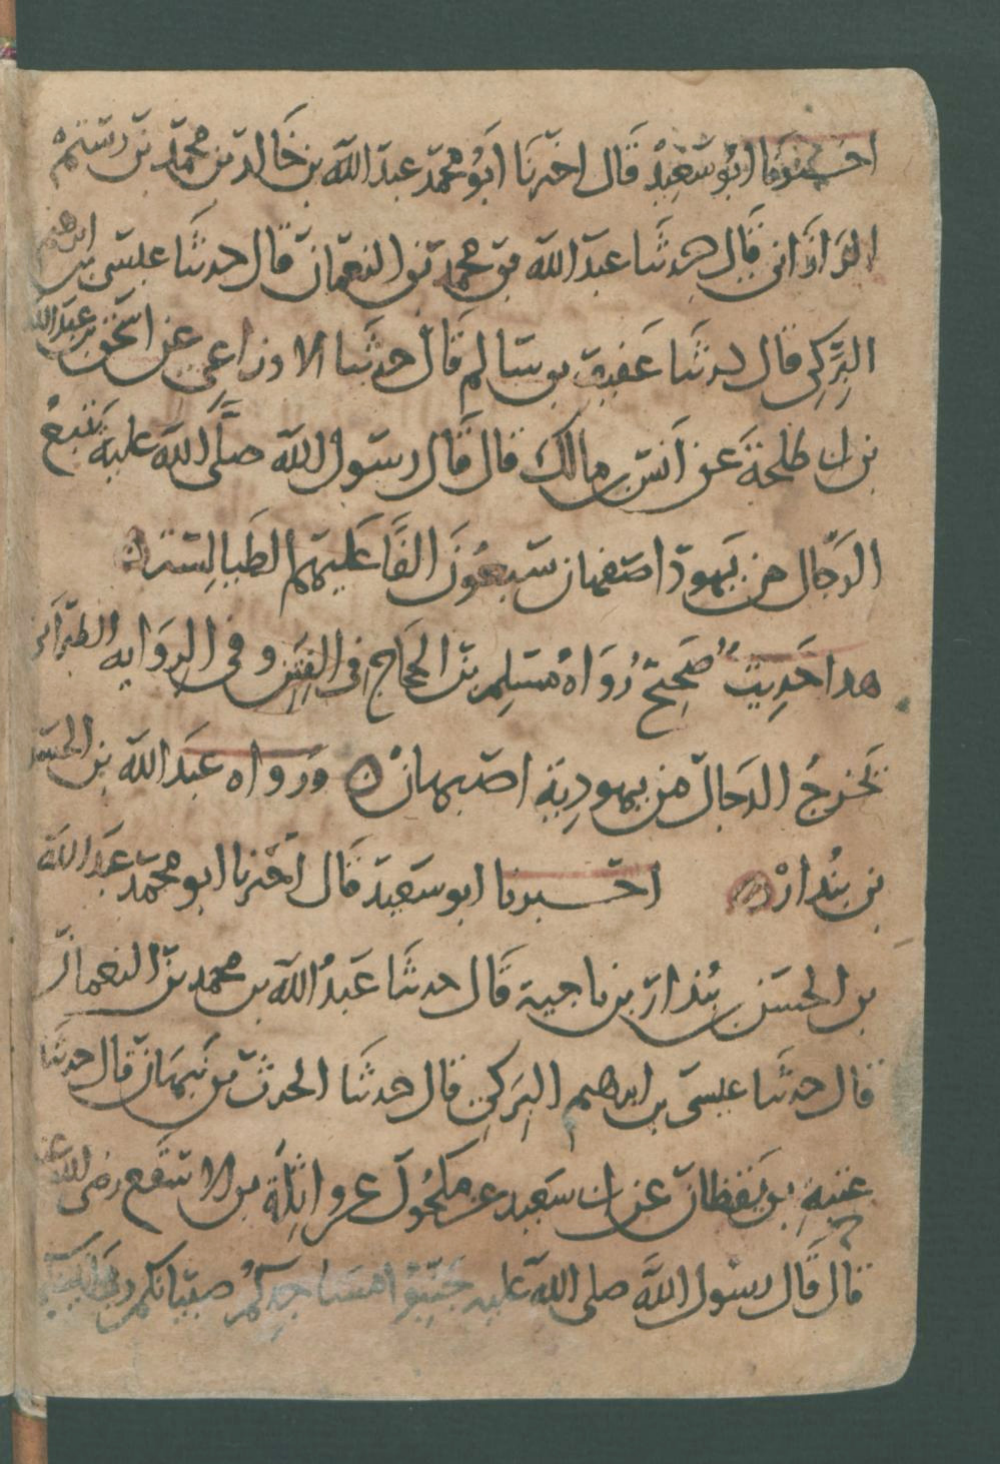 اخبرنا ابو سعيد قال اخبرنا ابو محمد عبد الله بن خالد بن محمد بن رستم
الراذاني قال حدثنا عبد الله بن محمد بن النعمان قال حدثنا عيسى بن ابرهيم
البركي قال حدثنا عفيف بن سالم قال حدثنا الاوزاعي عن اسحق بن عبد الله
بن ابي طلحة عن انس بن مالك قال قال رسول الله صلى الله عليه يتبع
الدجال من يهود اصفهان سبعون الفا عليهم الطيالسة
هدا حديث صحيح رواه مسلم بن الحجاج في الفتن وفي الرواية
يخرج الدجال من يهودية اصبهان ورواه عبد الله بن الحسن
بن بندار اخبرنا ابو سعيد قال اخبرنا ابو محمد عبد الله
بن الحسن بن بندار بن ناجية قال حدثنا عبد الله بن محمد بن النعمان
قال حدثنا عيسى بن ابرهيم البركي قال حدثنا الحرث بن نبهان قال حدثنا
عتبة بن يقظان عن ابي سعيد عن مكحول عن واثلة بن الاسقع رضي الله عنه
قال قال رسول الله صلى الله عليه جنبوا مساجدكم صبيانكم